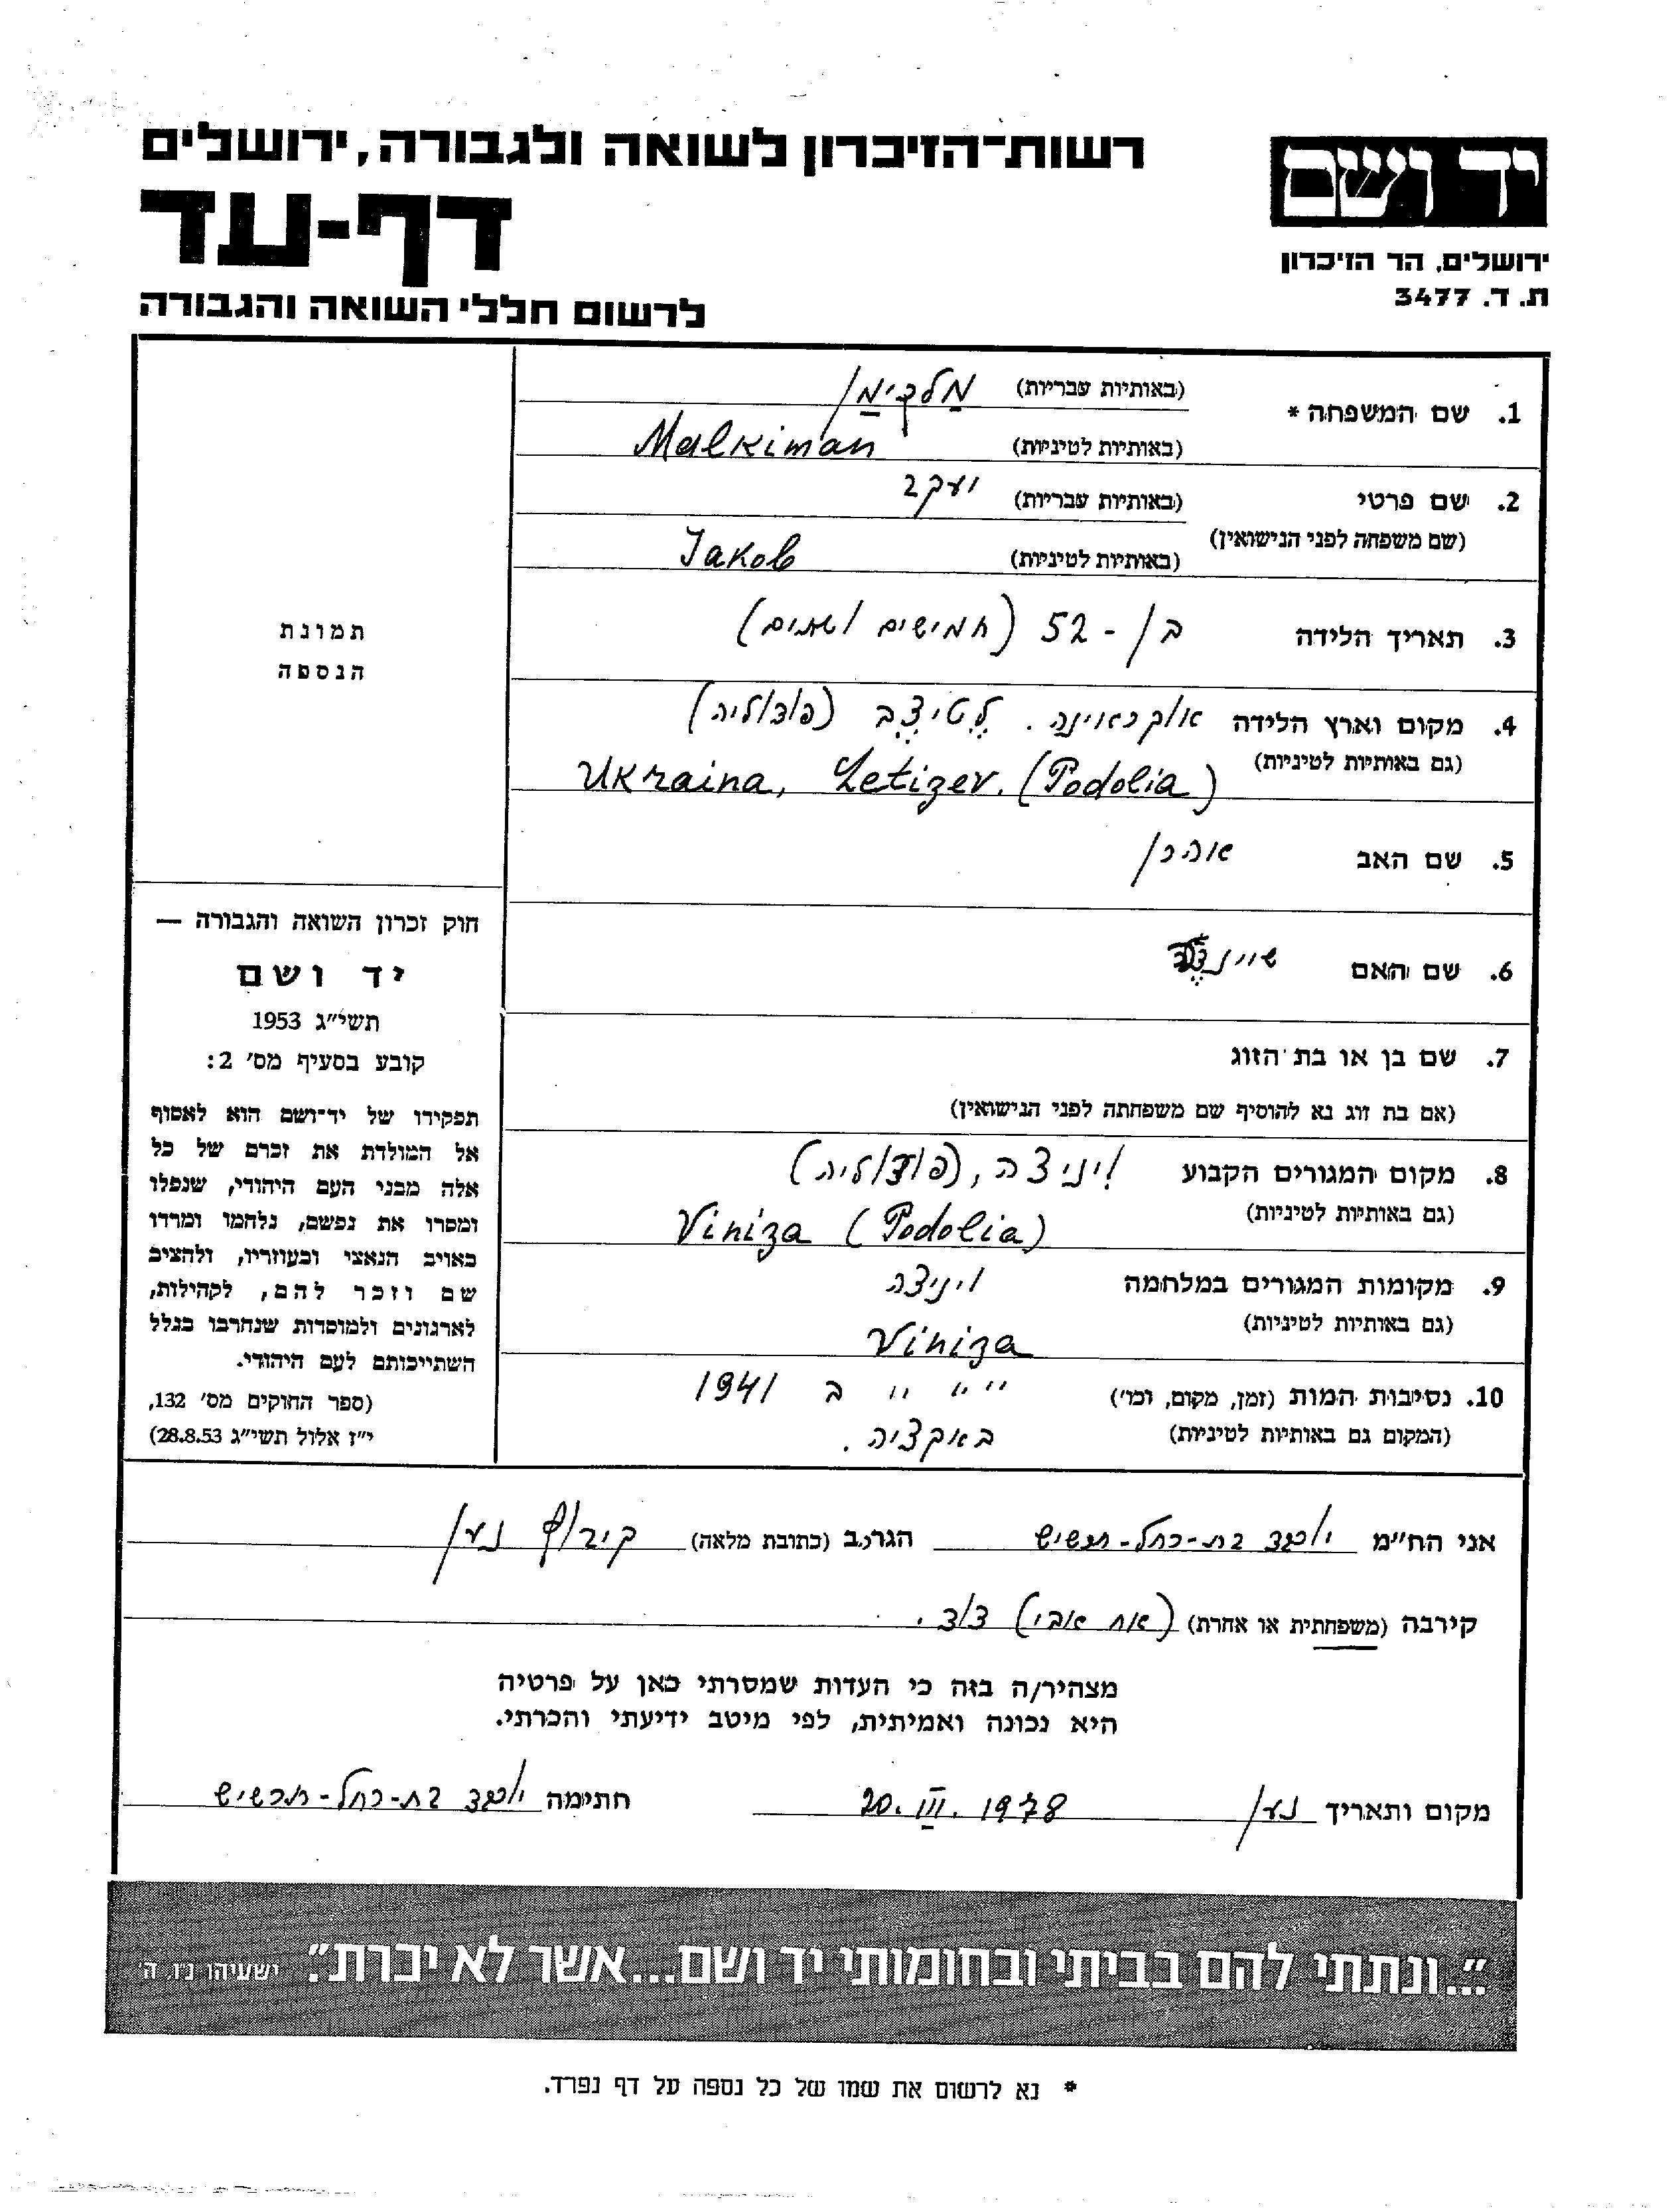 יד ושם
ירושלים, הר הזיכרון
ת. ד. 3477
רשות־הזיכרון לשואה ולגבורה, ירושלים
דף-עד
לרשום חללי השואה והגבורה
1. שם המשפחה *
(באותיות עבריות) מַלקימַן
(באותיות לטיניות) Malkiman
2. שם פרטי (באותיות עבריות) יעקב
(שם משפחה לפני הנישואין)
(באותיות לטיניות) Jakob
3. תאריך הלידה בן - 52 (חמישים ושתים)
4. מקום וארץ הלידה אוקראינה. לֶטיצֶב (פודוליה)
(גם באותיות לטיניות) Ukraina, Letizev. (Podolia)
5. שם האב אהרן
6. שם האם
7. שם בן או בת הזוג
(אם בת זוג נא להוסיף שם משפחתה לפני הנישואין)
8. מקום המגורים הקבוע ויניצה, (פודוליה)
(גם באותיות לטיניות) Viniza (Podolia)
9. מקומות המגורים במלחמה ויניצה
(גם באותיות לטיניות) Viniza
10. נסיבות המות (זמן, מקום, וכו') " " " ב 1941
(המקום גם באותיות לטיניות) באקציה.
תמונת
הנספה
חוק זכרון השואה והגבורה —
יד ושם
תשי"ג 1953
קובע בסעיף מס' 2:
תפקידו של יד־ושם הוא לאסוף
אל המולדת את זכרם של כל
אלה מבני העם היהודי, שנפלו
ומסרו את נפשם, נלחמו ומרדו
באויב הנאצי ובעוזריו, ולהציב
שם וזכר להם, לקהילות,
לארגונים ולמוסדות שנחרבו בגלל
השתייכותם לעם היהודי.
(ספר החוקים מס' 132,
י"ז אלול תשי"ג 28.8.53)
אני הח"מ יוכבד בת-רחל-תרשיש הגר/ב (כתובת מלאה) קיבוץ נען
קירבה (משפחתית או אחרת) (אח אבי) דוד.
מצהיר/ה בזה כי העדות שמסרתי כאן על פרטיה
היא נכונה ואמיתית, לפי מיטב ידיעתי והכרתי.
מקום ותאריך נען 20. III. 1978 חתימה יוכבד בת-רחל-תרשיש
"...ונתתי להם בביתי ובחומותי יד ושם...אשר לא יכרת". ישעיהו נ"ו, ה'
* נא לרשום את שמו של כל נספה על דף נפרד.